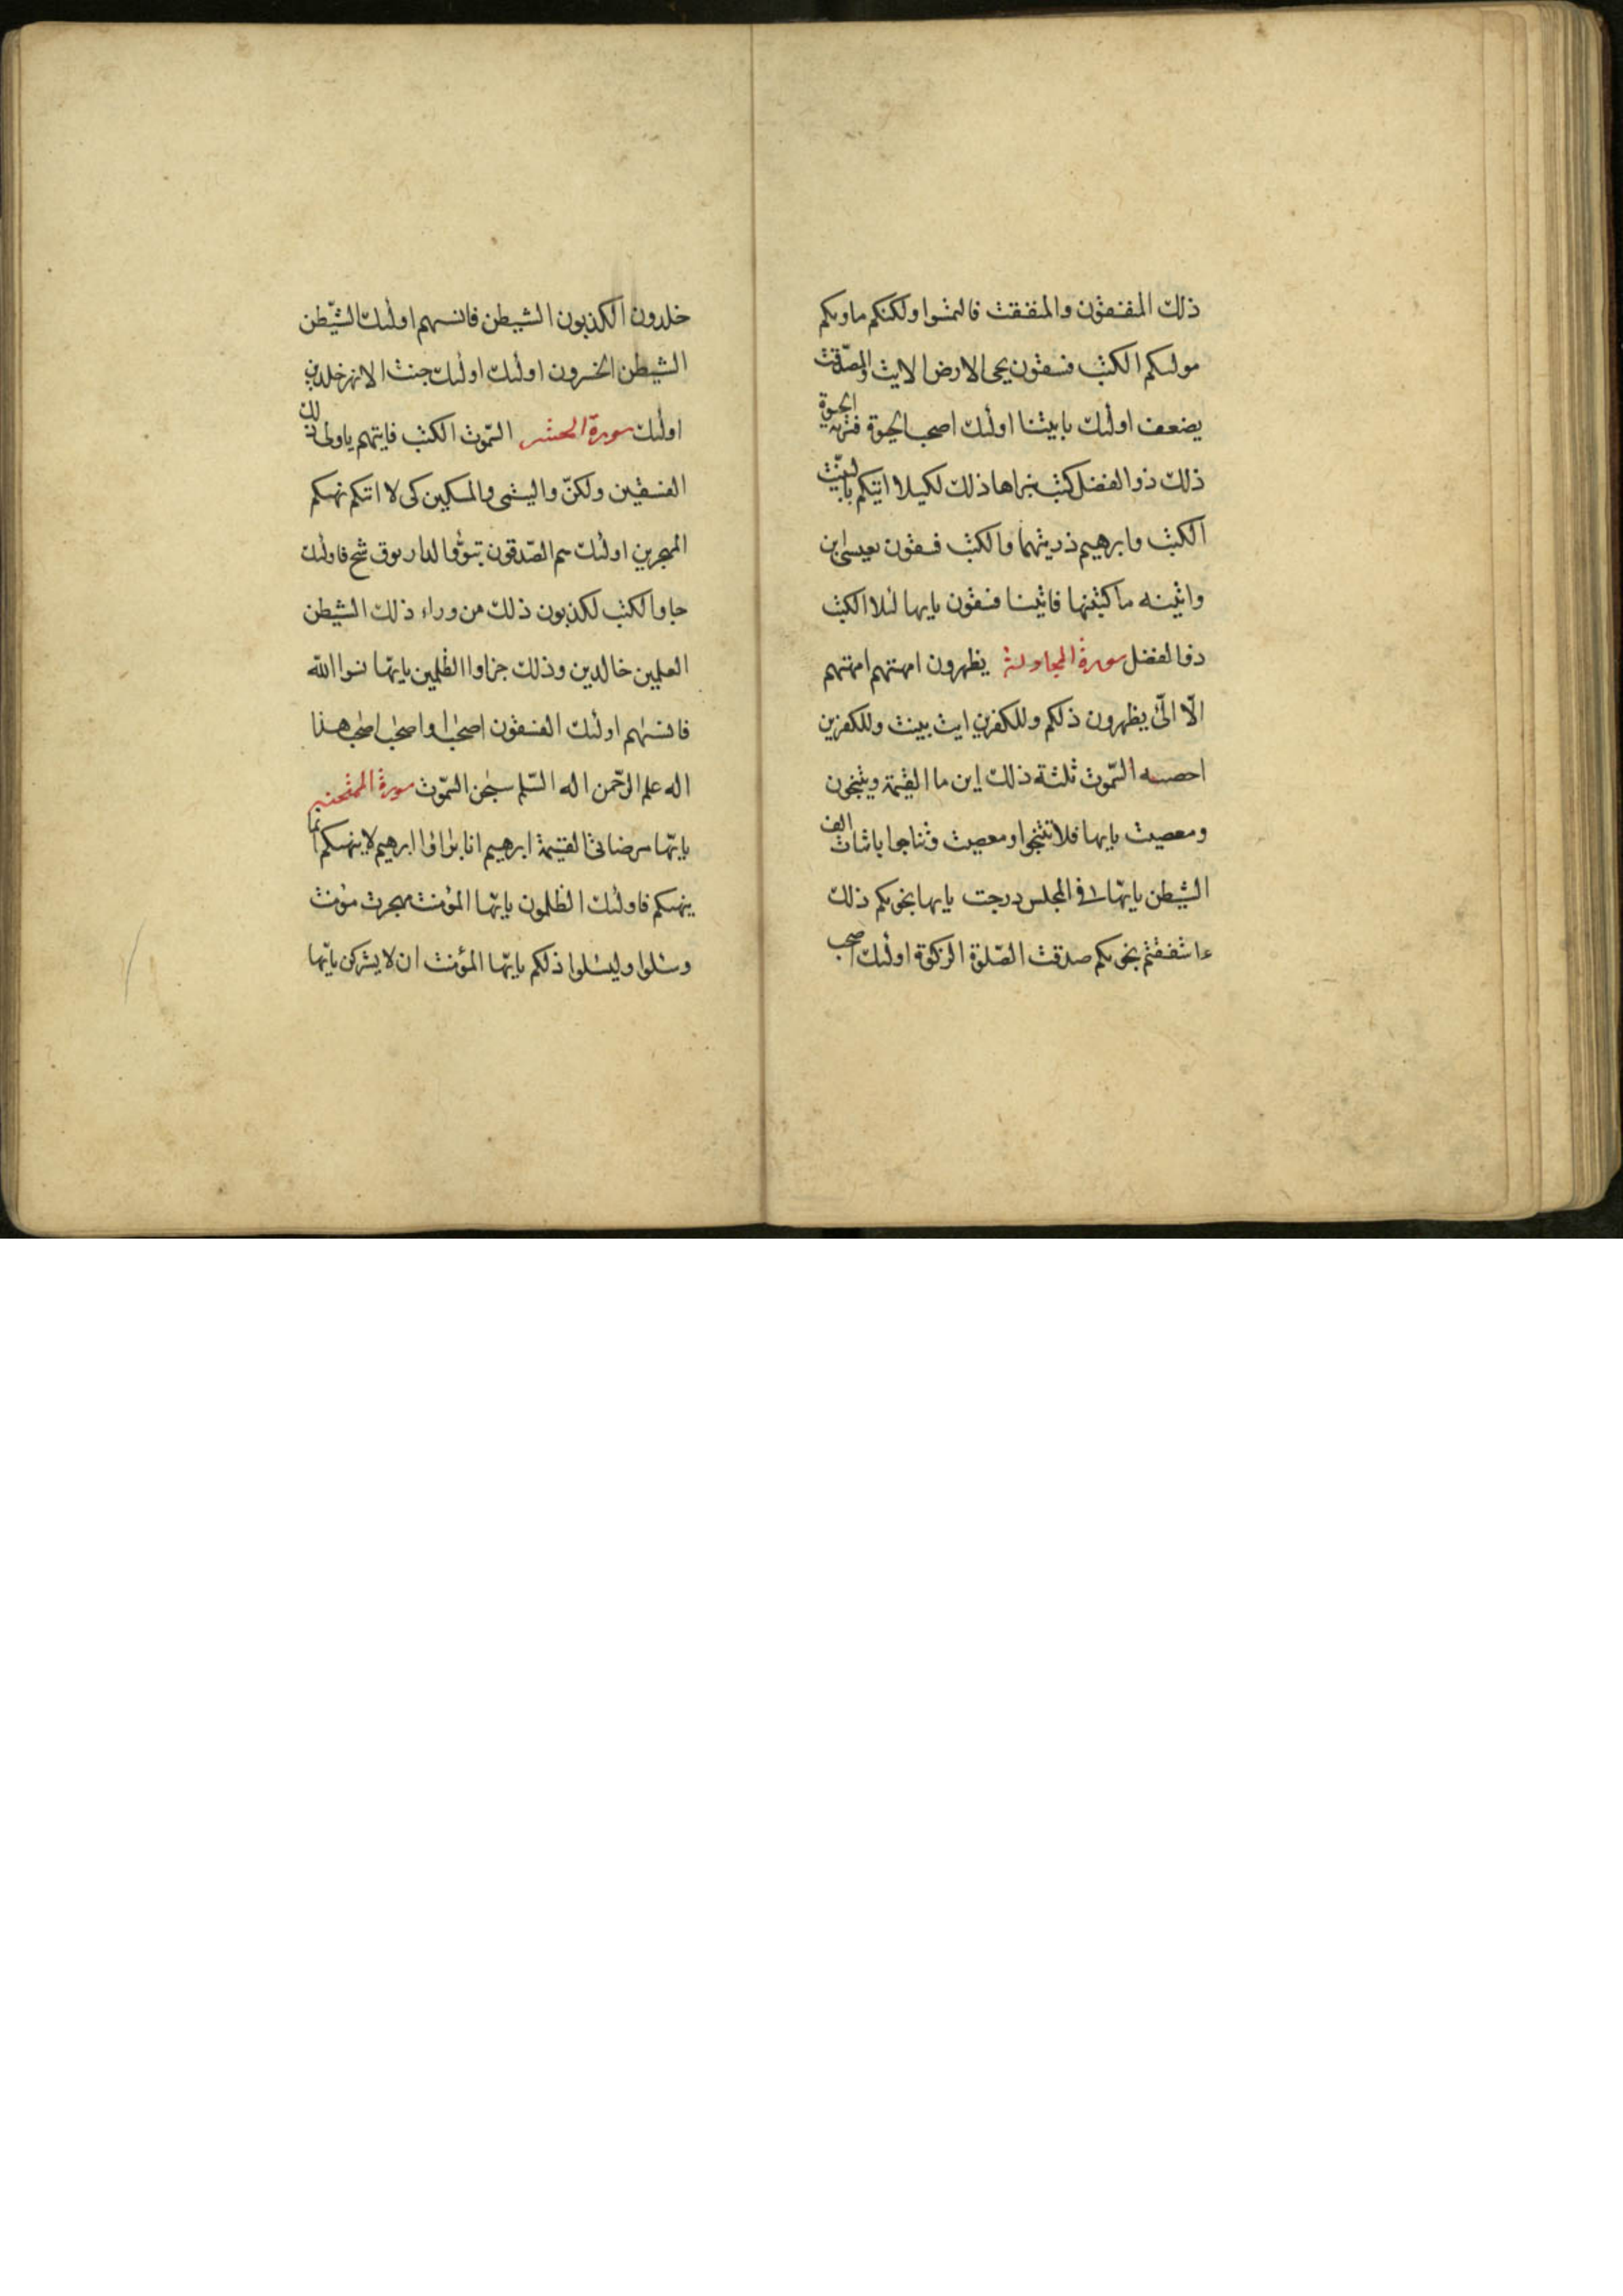 ذلك المنفقون والمنفقت فالتمسوا ولكنكم ماويكم
موليكم الكتب فسقون يحى الارض الايت والمصّدّقت
يضعف اولئك باىيتنا اولئك اصحب الحيوة فتريه الحيوة
ذلك ذو الفضل كتب نبراها ذلك لكيلا اتيكم بالبيّنت
الكتب وابرهيم ذريتهما والكتب فسقون بعيسى ابن
واتينه ما كتبنها فاتينا فسقون يايها لئلا الكتب
ذو الفضل سورة المجادلة يظهرون امهتهم امهتهم
الّا الّئ يظهرون ذلكم وللكفرين ايت بينت وللكفرين
احصىه السّموت ثلثة ذلك اين ما القيمة ويتنجون
ومعصيت يايها فلا تتنجوا ومعصيت وتناجوا باثبات الف
الشيطن يايّها فى المجلس درجت يايها نجويكم ذلك
ءاشفقتم نجويكم صدقت الصّلوة الزكوة اولئك اصحب
خلدون الكذبون الشيطن فانسىهم اولئك الشّيطن
الشيطن الخسرون اولئك اولئك جنت الانهر خلدين
اولئك سورة الحشر السّموت الكتب فايتهم ياولى ذلك
الفسقين ولكنّ واليتمى والمسكين كى لا اتيكم نهيكم
المهجرين اولئك هم الصّدقون تبوّؤ الدار يوق شح فاولئك
جاو الكتب لكذبون ذلك من وراء ذلك الشيطن
العلمين خالدين وذلك جزاوا الظلمين يايّها نسوا اللّه
فانسىهم اولئك الفسقون اصحب واصحب اصحب هذا
اله علم الرّحمن اله السّلم سبحن السّموت سورة الممتحنه
يايّها مرضاتى القيمة ابرهيم انا برٰؤا ابرهيم لا ينهىكم انما
ينهىكم فاولئك الظلمون يايّها المؤمنت مهجرت مؤمنت
وسلوا وليسلوا ذلكم يايّها المؤمنت ان لا يشركن يايّها